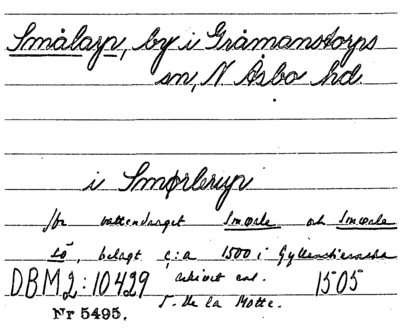 Smålarp, by i Gråmanstorps
sn, N. Åsbo hd.
i Smørleryp
för vattendraget Smørle och Smørle
så, belagt c:a 1500 i Gyllenstiernska
DBM2:10429 arkivet enl. 1505
T. de la Motte.
Nr 5495.